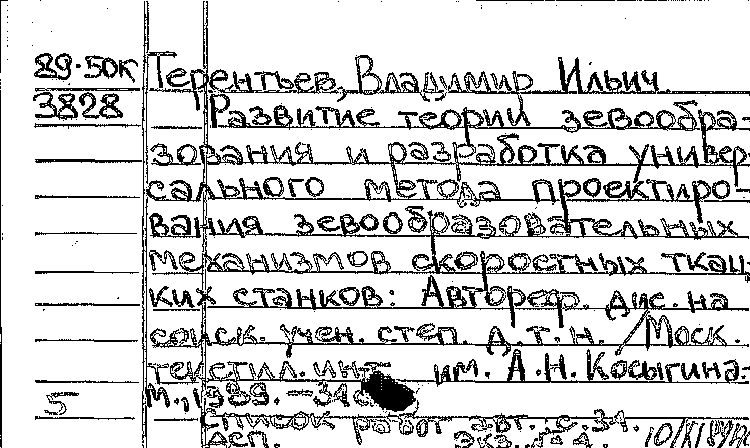 89-50к Терентьев, Владимир Ильич.
3828 Развитие теории зевообра-
зования и разработка универ-
сального метода проектиро-
вания зевообразовательных
механизмов скоростных ткац-
ких станков: Автореф. дис. на
соиск. учен. степ. д.т.н. / Моск.
текстил. ин-т им. А.Н. Косыгина.-
5 М., 1989. - 34с
Список работ авт.: с. 34.
экз.